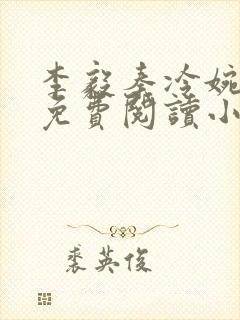 李毅秦冷婉
免費閱讀小
裘英俊